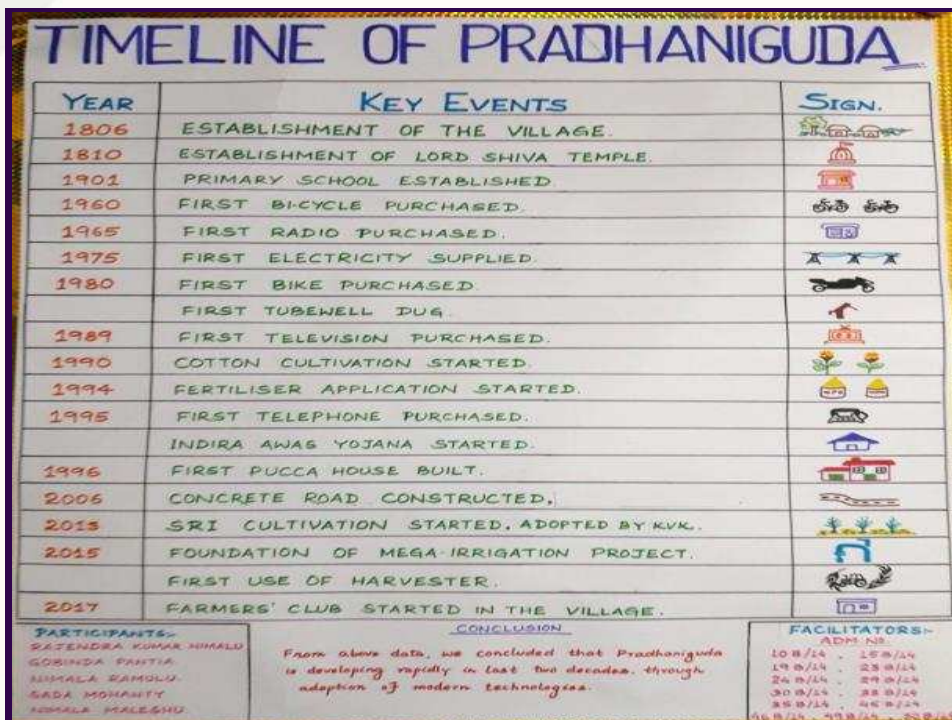 TIMELINE OF PRADHANIGUDA
YEAR KEY EVENTS SIGN.
1806 ESTABLISHMENT OF THE VILLAGE.
1810 ESTABLISHMENT OF LORD SHIVA TEMPLE.
1901 PRIMARY SCHOOL ESTABLISHED.
1960 FIRST BI-CYCLE PURCHASED.
1965 FIRST RADIO PURCHASED.
1975 FIRST ELECTRICITY SUPPLIED.
1980 FIRST BIKE PURCHASED.
FIRST TUBEWELL DUG.
1989 FIRST TELEVISION PURCHASED.
1990 COTTON CULTIVATION STARTED.
1994 FERTILISER APPLICATION STARTED.
1995 FIRST TELEPHONE PURCHASED.
INDIRA AWAS YOJANA STARTED.
1996 FIRST PUCCA HOUSE BUILT.
2006 CONCRETE ROAD CONSTRUCTED.
2013 SRI CULTIVATION STARTED, ADOPTED BY KVK.
2015 FOUNDATION OF MEGA-IRRIGATION PROJECT.
FIRST USE OF HARVESTER.
2017 FARMERS' CLUB STARTED IN THE VILLAGE.
PARTICIPANTS:-
RAJENDRA KUMAR
GOBINDA PANTIA
NIMALA RAMULU
SADA MOHANTY
NIMALA
CONCLUSION
From above data, we concluded that Pradhaniguda
is developing rapidly in last two decades, through
adoption of modern technologies.
FACILITATORS:-
ADM. NO.